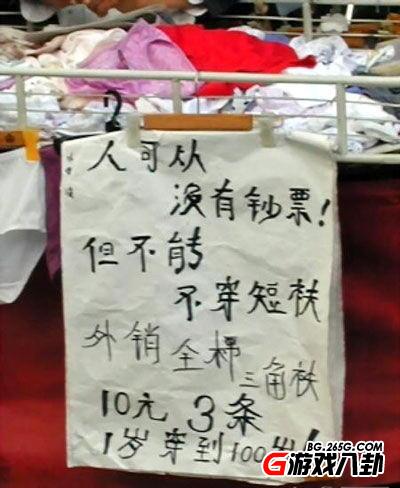 人可以
没有钞票！
但不能
不穿短衭
外销全棉
三角衭
10元 3条
1岁穿到100岁！
BG.265G.COM
G游戏八卦